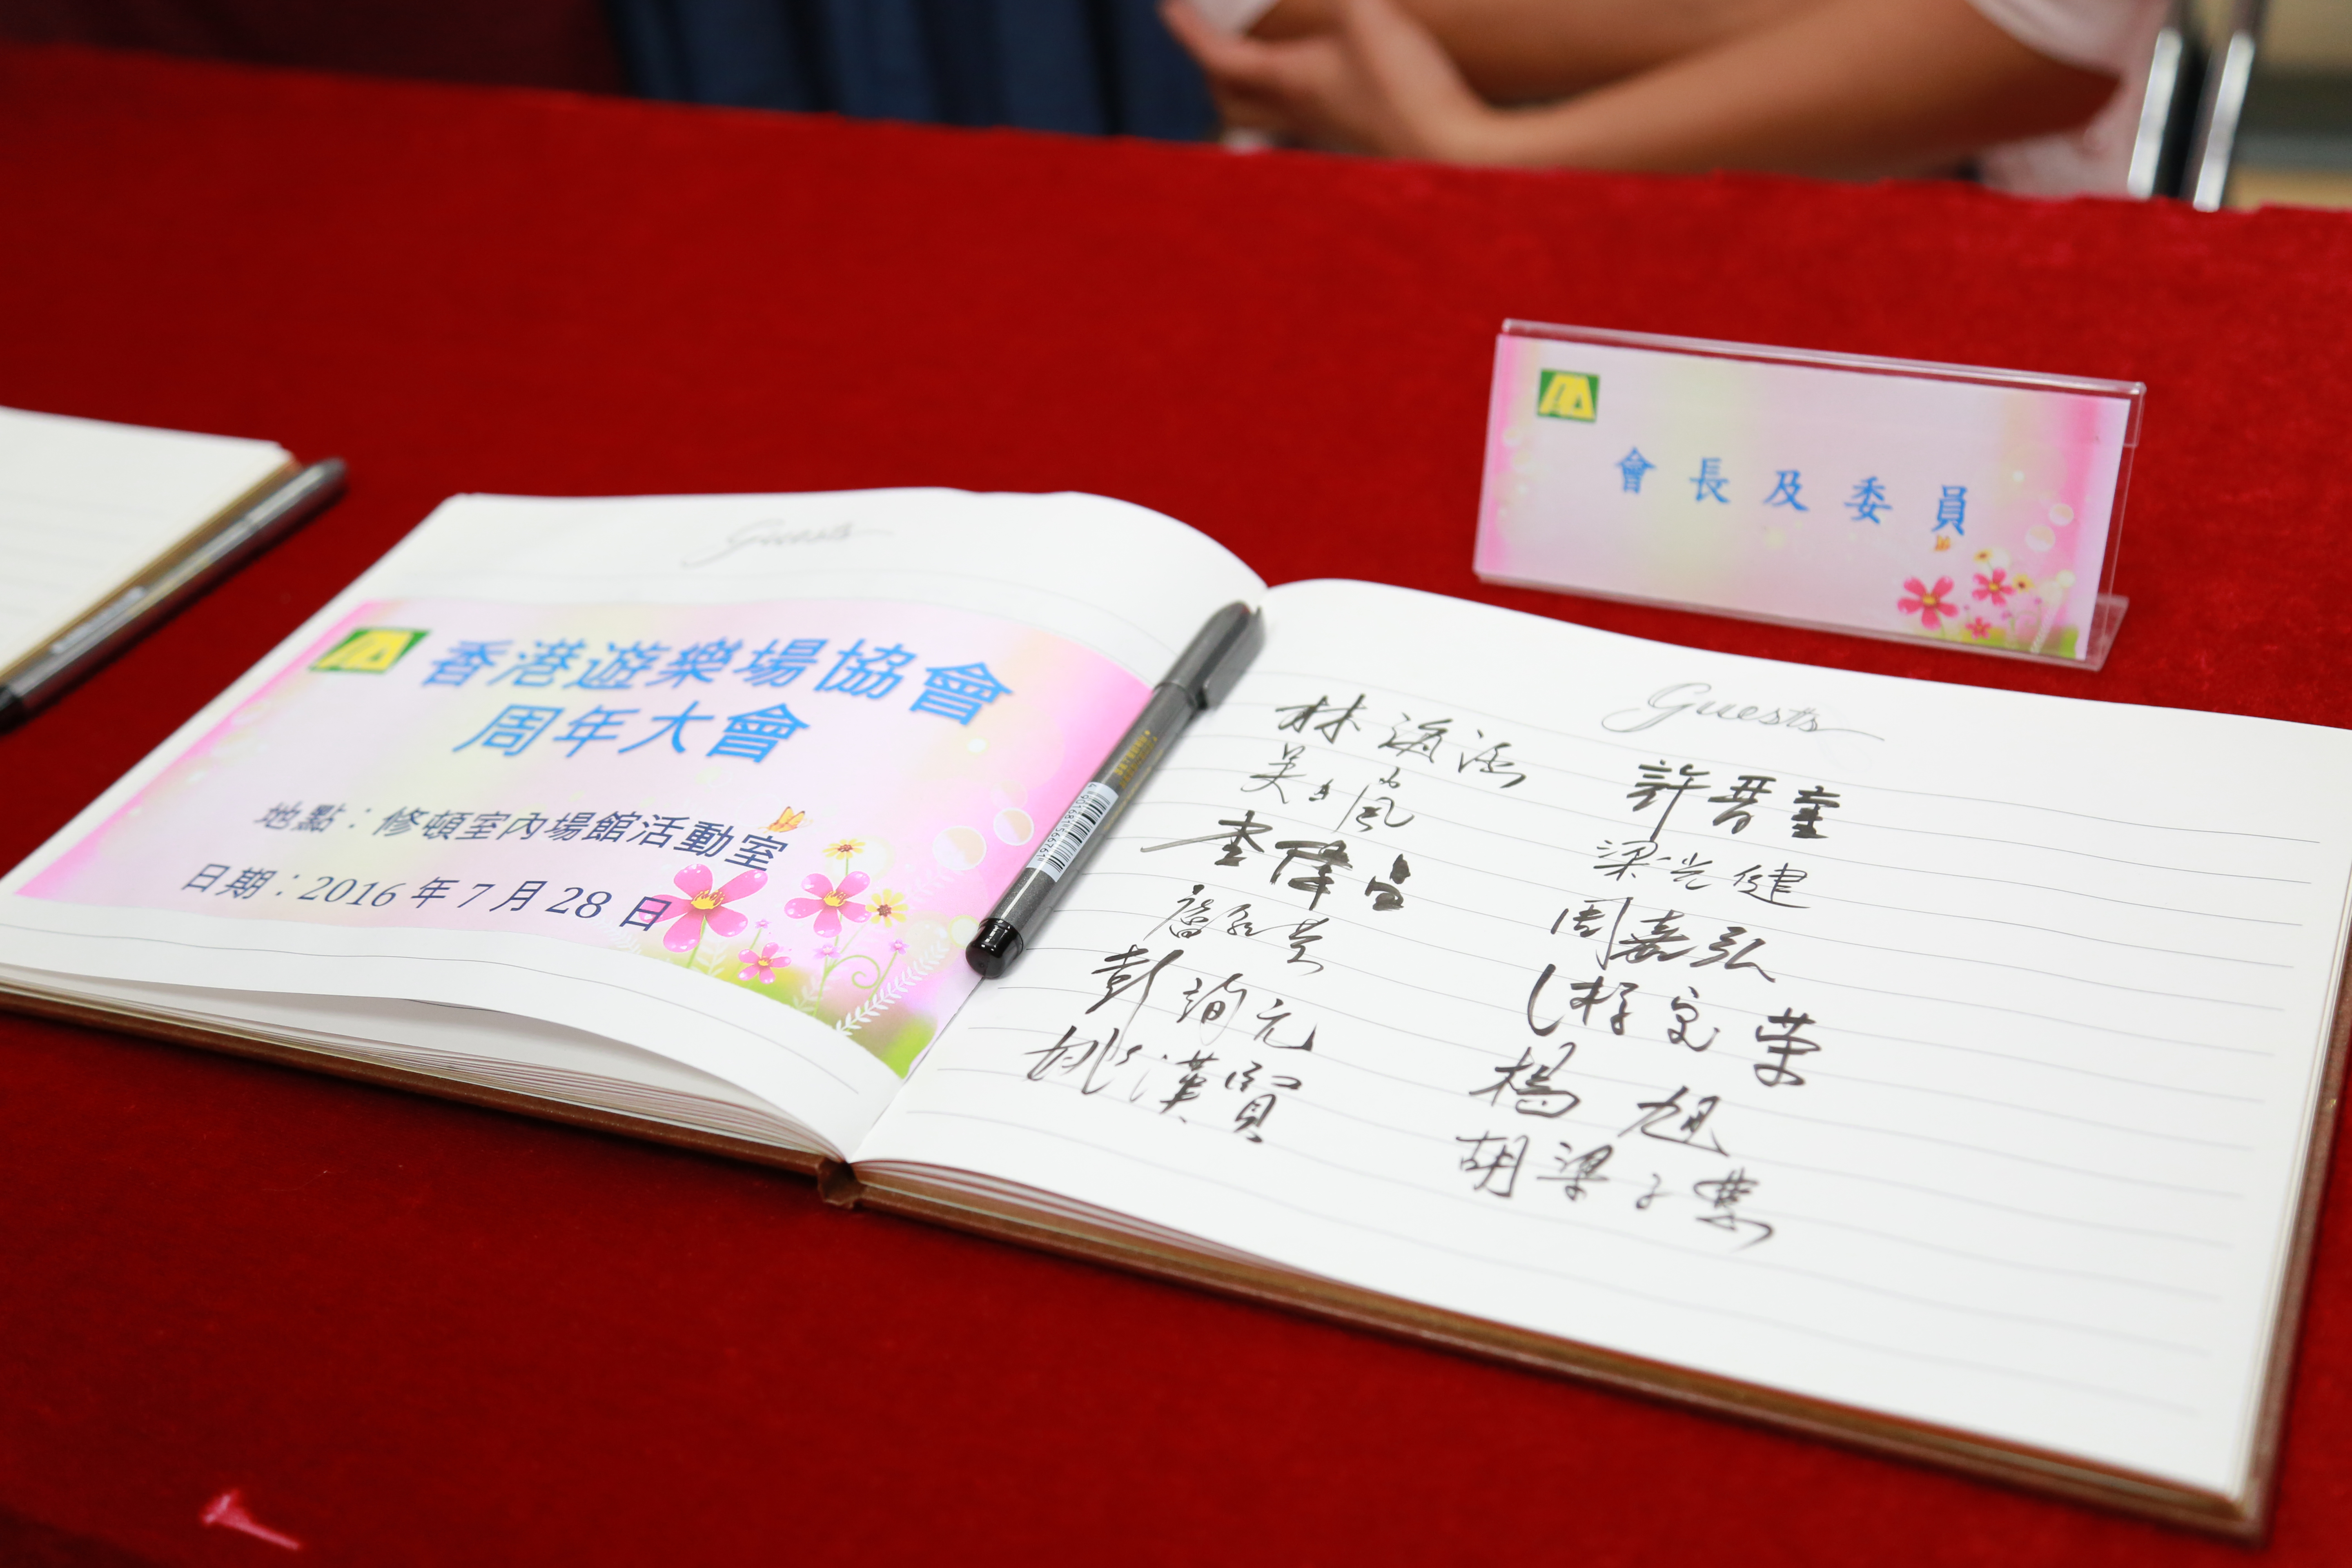 會長及委員
Guests
香港遊樂場協會
周年大會
地點：修頓室內場館活動室
日期：2016 年 7 月 28 日
Guests
林海涵
李偉
彭詢元
姚漢賢
許晋奎
梁光健
周嘉弘
榮
楊旭
胡梁子慧